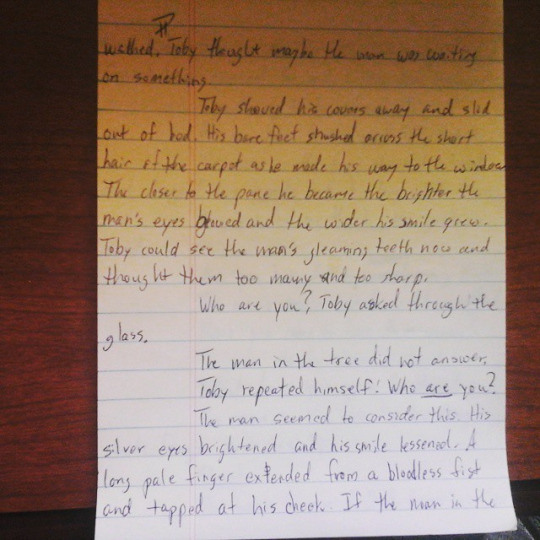 walked. Toby thought maybe the man was waiting
on something.
Toby shoved his covers away and slid
out of bed. His bare feet shushed across the short
hair of the carpet as he made his way to the window
The closer to the pane he became the brighter the
man's eyes glowed and the wider his smile grew.
Toby could see the man's gleaming teeth now and
thought them too many and too sharp.
Who are you? Toby asked through the
glass.
The man in the tree did not answer.
Toby repeated himself: Who are you?
The man seemed to consider this. His
silver eyes brightened and his smile lessened. A
long pale finger extended from a bloodless fist
and tapped at his cheek. If the man in the